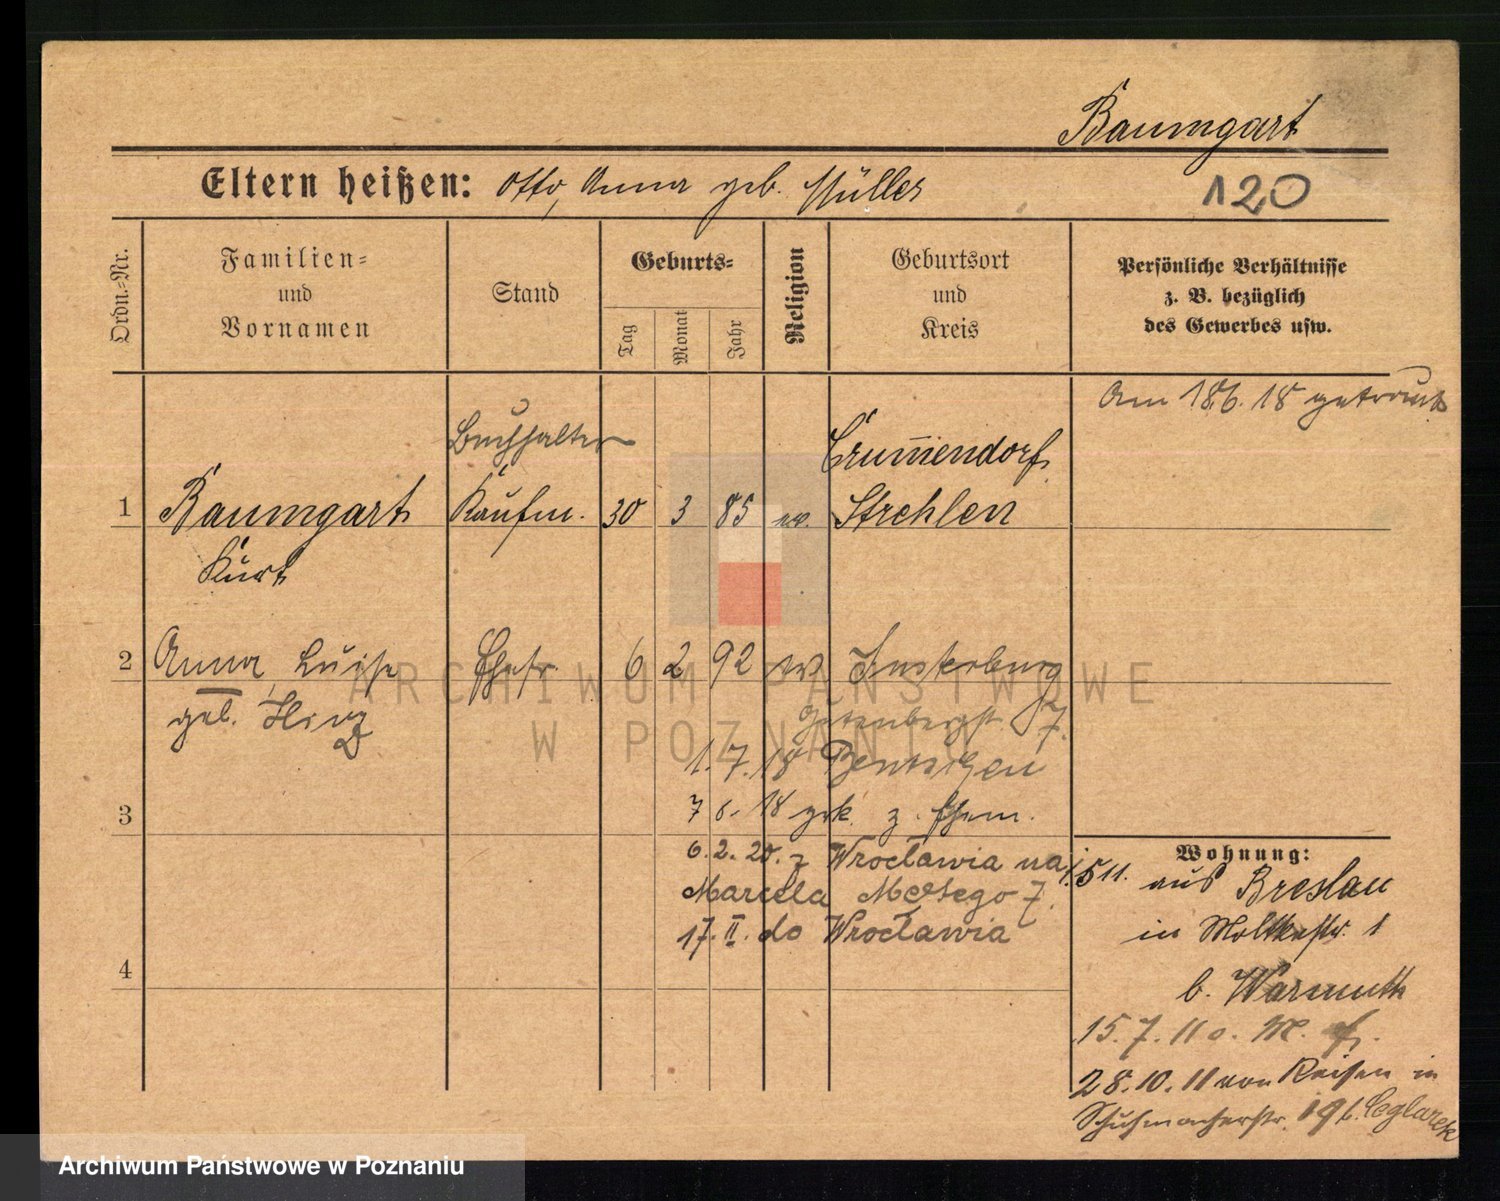 Baumgart
Eltern heißen: Otto, Anna geb. Müller
120
Ordn.=Nr.
Familien=
und
Vornamen
Stand
Geburts=
Tag
Monat
Jahr
Religion
Geburtsort
und
Kreis
Persönliche Verhältnisse
z. B. bezüglich
des Gewerbes usw.
Am 18.6.18 getraut
Buchhalter
Crummendorf
1 Baumgart Kaufm. 30 3 85 ev. Strehlen
Kurt
2 Anna, Luise Ehefr. 6 2 92 Insterburg
geb.
ARCHIWUM PAŃSTWOWE
W POZNANIU
7.
1.7.18 Bentschen
3
7 6. 18 z. Ehem.
6.2.20. z Wrocławia na
Marcela 7.
17.II. do Wrocławia
4
Wohnung:
1.5 11. aus Breslau
in Moltkestr. 1
b. Warmuth
15.7.11 o.
28.10.11 von Reisen in
Schuhmacherstr. 19 b. Ceglarek
Archiwum Państwowe w Poznaniu